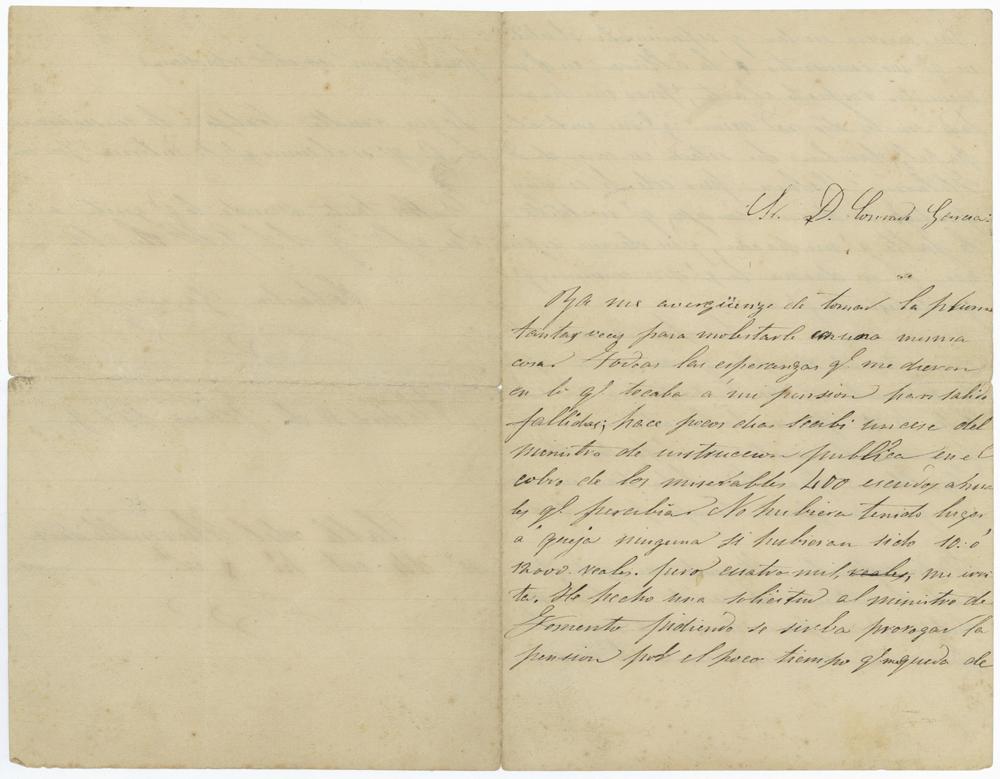 Sr. D. Conrado Garcia:
Ya me avergüenzo de tomar la pluma
tantas veces para molestarle en una misma
cosa. Todas las esperanzas q.e me dieron
en lo q.e tocaba á mi pension han salido
fallidas; hace pocos dias recibí un cese del
ministro de instruccion publica en el
cobro de los miserables 400 escudos anua-
les q.e percibia. No hubiera tenido lugar
á queja ninguna si hubieran sido 10. ó
12000. reales. pero cuatro mil, reales, me irri-
ta. He hecho una solicitud al ministro de
Fomento pidiendo se sirba prorogar la
pension por el poco tiempo q.e me queda de